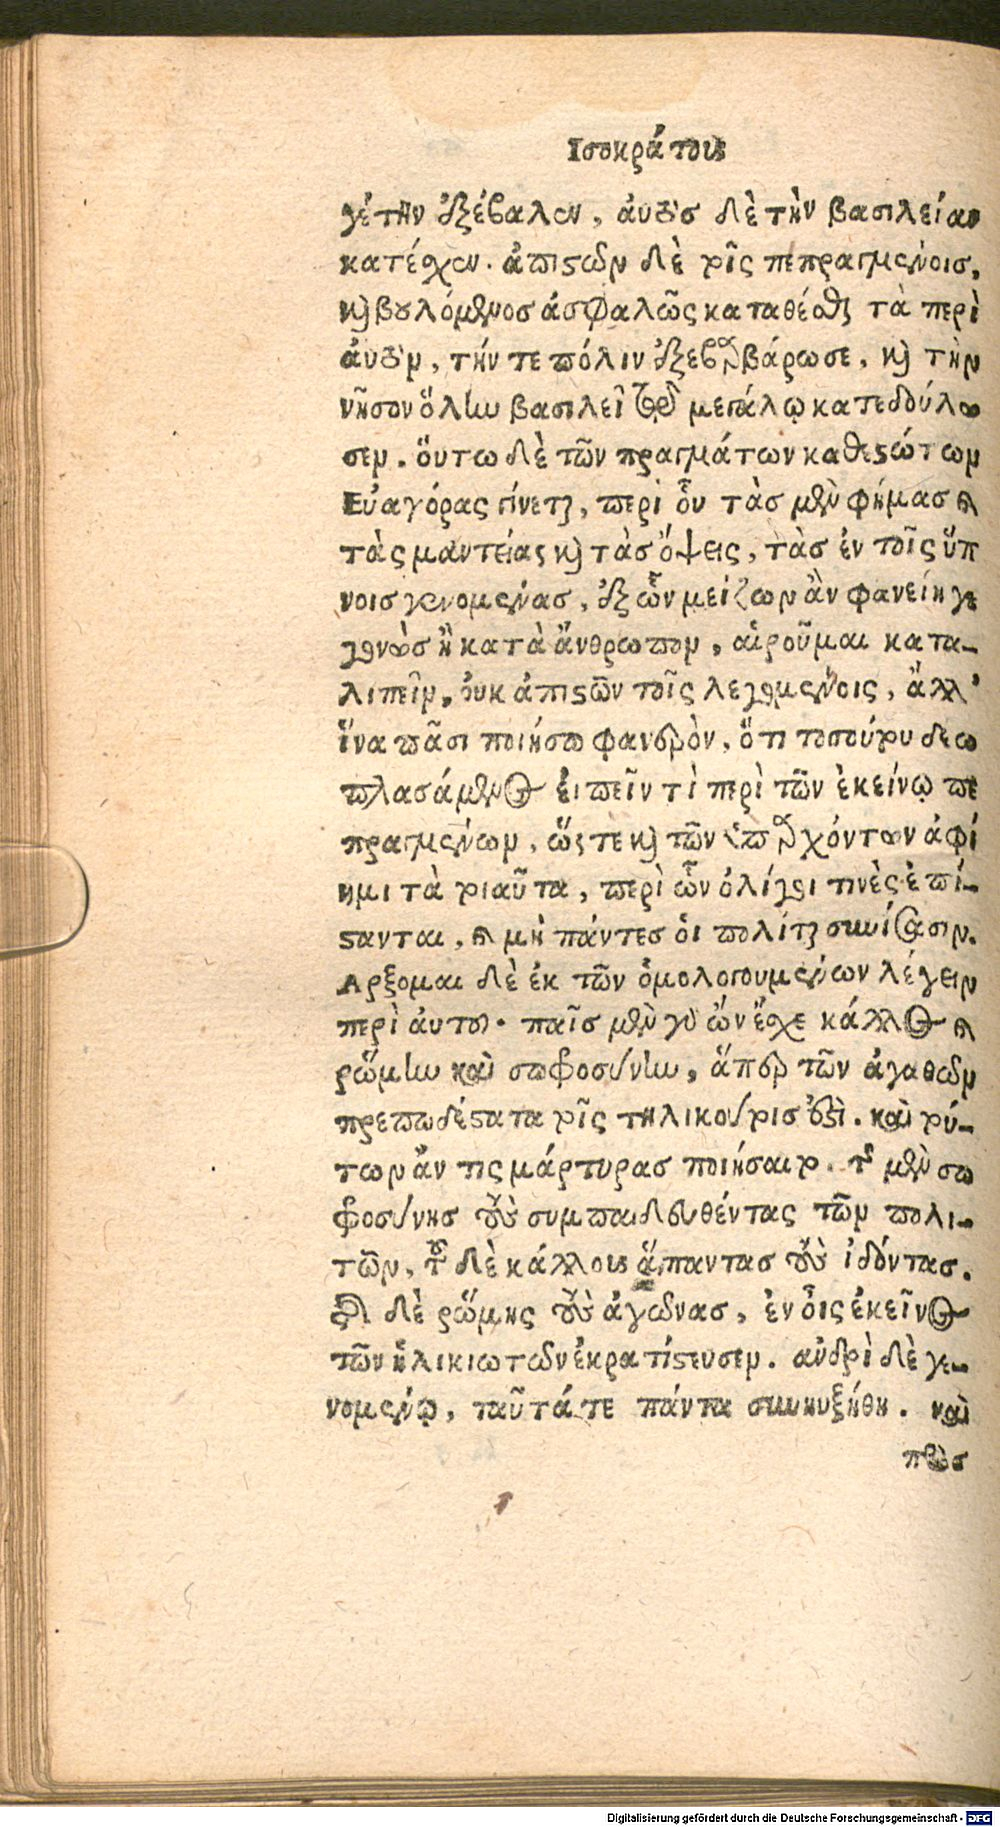 Ισοκράτους
γέτην ἐξέβαλεν, ἀυτὸσ δὲ τὴν βασιλείαν
κατέχεν. ἀπιστῶν δὲ τοῖς πεπραγμένοισ,
καὶ βουλόμενοσ ἀσφαλῶς καταθέσθαι τὰ περὶ
ἀυτὸν, τήν τε πόλιν ἐξεβαρβάρωσε, καὶ τὴν
νῆσον ὅλην βασιλεῖ τῷ μεγάλῳ κατεδούλω
σεν. ὅυτω δὲ τῶν πραγμάτων καθεστώτων
Εὐαγόρας γίνεται, περὶ οὗ τὰσ μὲν φήμασ καὶ
τὰς μαντείας καὶ τὰσ ὄψεις, τὰσ ἐν τοῖς ὕπ
νοισ γενομένασ, ἐξ ὧν μείζων ἂν φανείη γε
γονὼσ ἢ κατὰ ἄνθρωπον, αἱροῦμαι κατα-
λιπεῖν, ὀυκ ἀπιστῶν τοῖς λεγομένοις, ἀλλ'
ἵνα πᾶσι ποιήσω φανερὸν, ὅτι τοσούτου δέω
πλασάμενος ἐιπεῖν τὶ περὶ τῶν ἐκείνῳ πε
πραγμένων, ὥςτε καὶ τῶν ὑπαρχόντων ἀφί
ημι τὰ τοιαῦτα, περὶ ὧν ὀλίγοι τινὲς ἐπί-
στανται, καὶ μὴ πάντεσ ὁι πολίται συνίσασιν.
Αρξομαι δὲ ἐκ τῶν ὁμολογουμένων λέγειν
περὶ ἀυτοῦ. παῖσ μὲν γὰρ ὢν ἔσχε κάλλος καὶ
ῥώμην καὶ σωφροσύνην, ἅπερ τῶν ἀγαθῶν
πρεπωδέστατα τοῖς τηλικούτοισ ἐστὶ. καὶ τού-
των ἄν τις μάρτυρασ ποιήσαιτο. τῆς μὲν σω
φροσύνησ τοὺς συμπαιδευθέντας τῶν πολι-
τῶν, τοῦ δὲ κάλλους ἅπαντασ τοὺς ἰδόντασ.
τῆς δὲ ῥώμης τοὺς ἀγῶνασ, ἐν οἷς ἐκεῖνος
τῶν ἡλικιωτῶν ἐκρατίστευσεν. ἀνδρὶ δὲ γε-
νομένῳ, ταῦτά τε πάντα συνηυξήθη. καὶ
πρὸσ
Digitalisierung gefördert durch die Deutsche Forschungsgemeinschaft - DFG